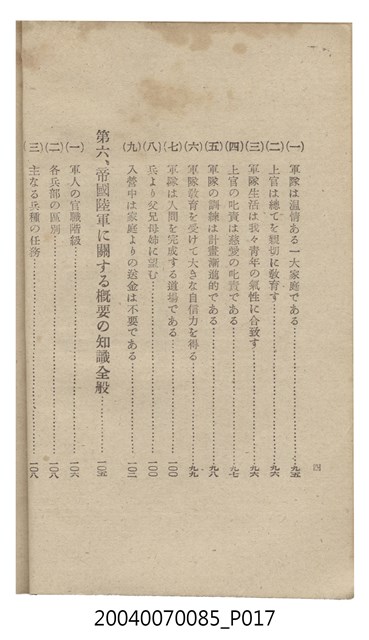 (一) 軍隊は溫情ある一大家庭である……九五
(二) 上官は總てを親切に敎育す……九六
(三) 軍隊生活は我々靑年の氣性に合致す……九六
(四) 上官の叱責は慈愛の叱責である……九七
(五) 軍隊の訓練は計畫漸進的である……九八
(六) 軍隊敎育を受けて大きな自信力を得る……九九
(七) 軍隊は人間を完成する道場である……一〇〇
(八) 兵より父兄母姉に望む……一〇〇
(九) 入營中は家庭よりの送金は不要である……一〇二
第六、帝國陸軍に關する概要の知識全般……一〇五
(一) 軍人の官職階級……一〇六
(二) 各兵部の區別……一〇八
(三) 主なる兵種の任務……一〇八
四
20040070085_P017